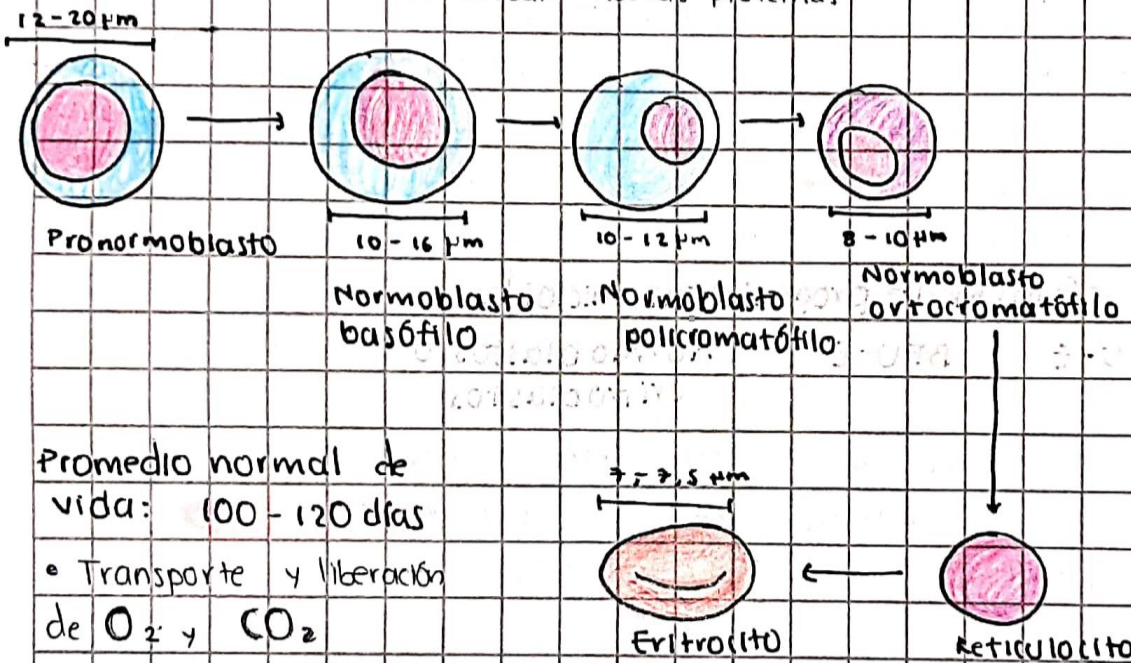 12-20 µm
Pronormoblasto
10 - 16 µm
Normoblasto
basófilo
10 - 12 µm
Normoblasto
policromatófilo
8 - 10 µm
Normoblasto
ortocromatófilo
Promedio normal de
vida: 100 - 120 días
• Transporte y liberación
de O₂ y CO₂
7 - 7,5 µm
Eritrocito
Reticulocito